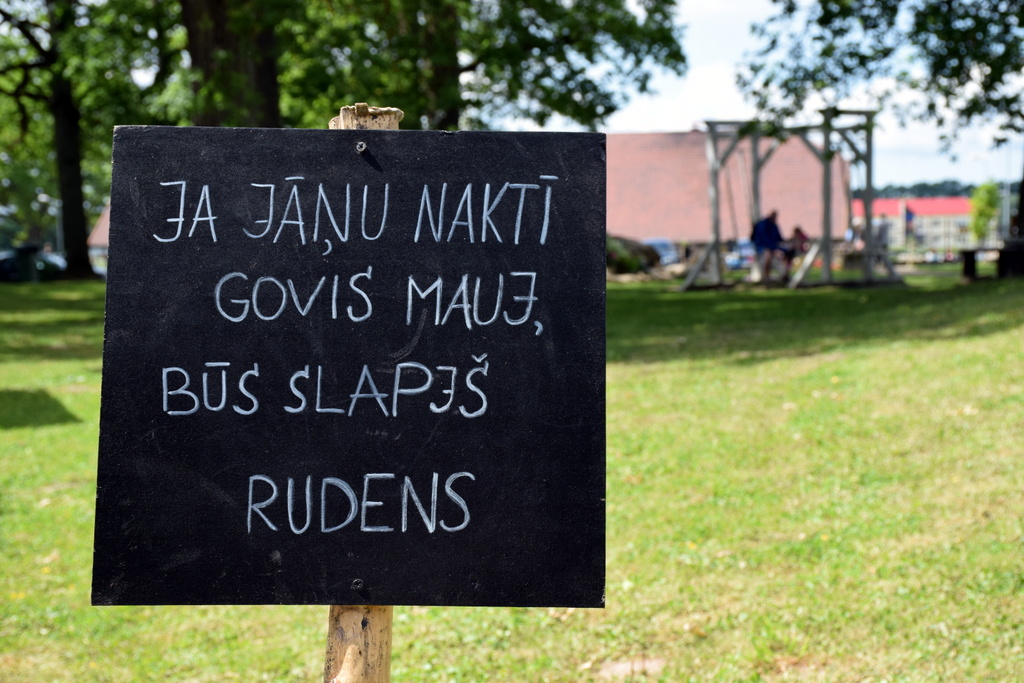 JA JĀŅU NAKTĪ
GOVIS MAUJ,
BŪS SLAPJŠ
RUDENS